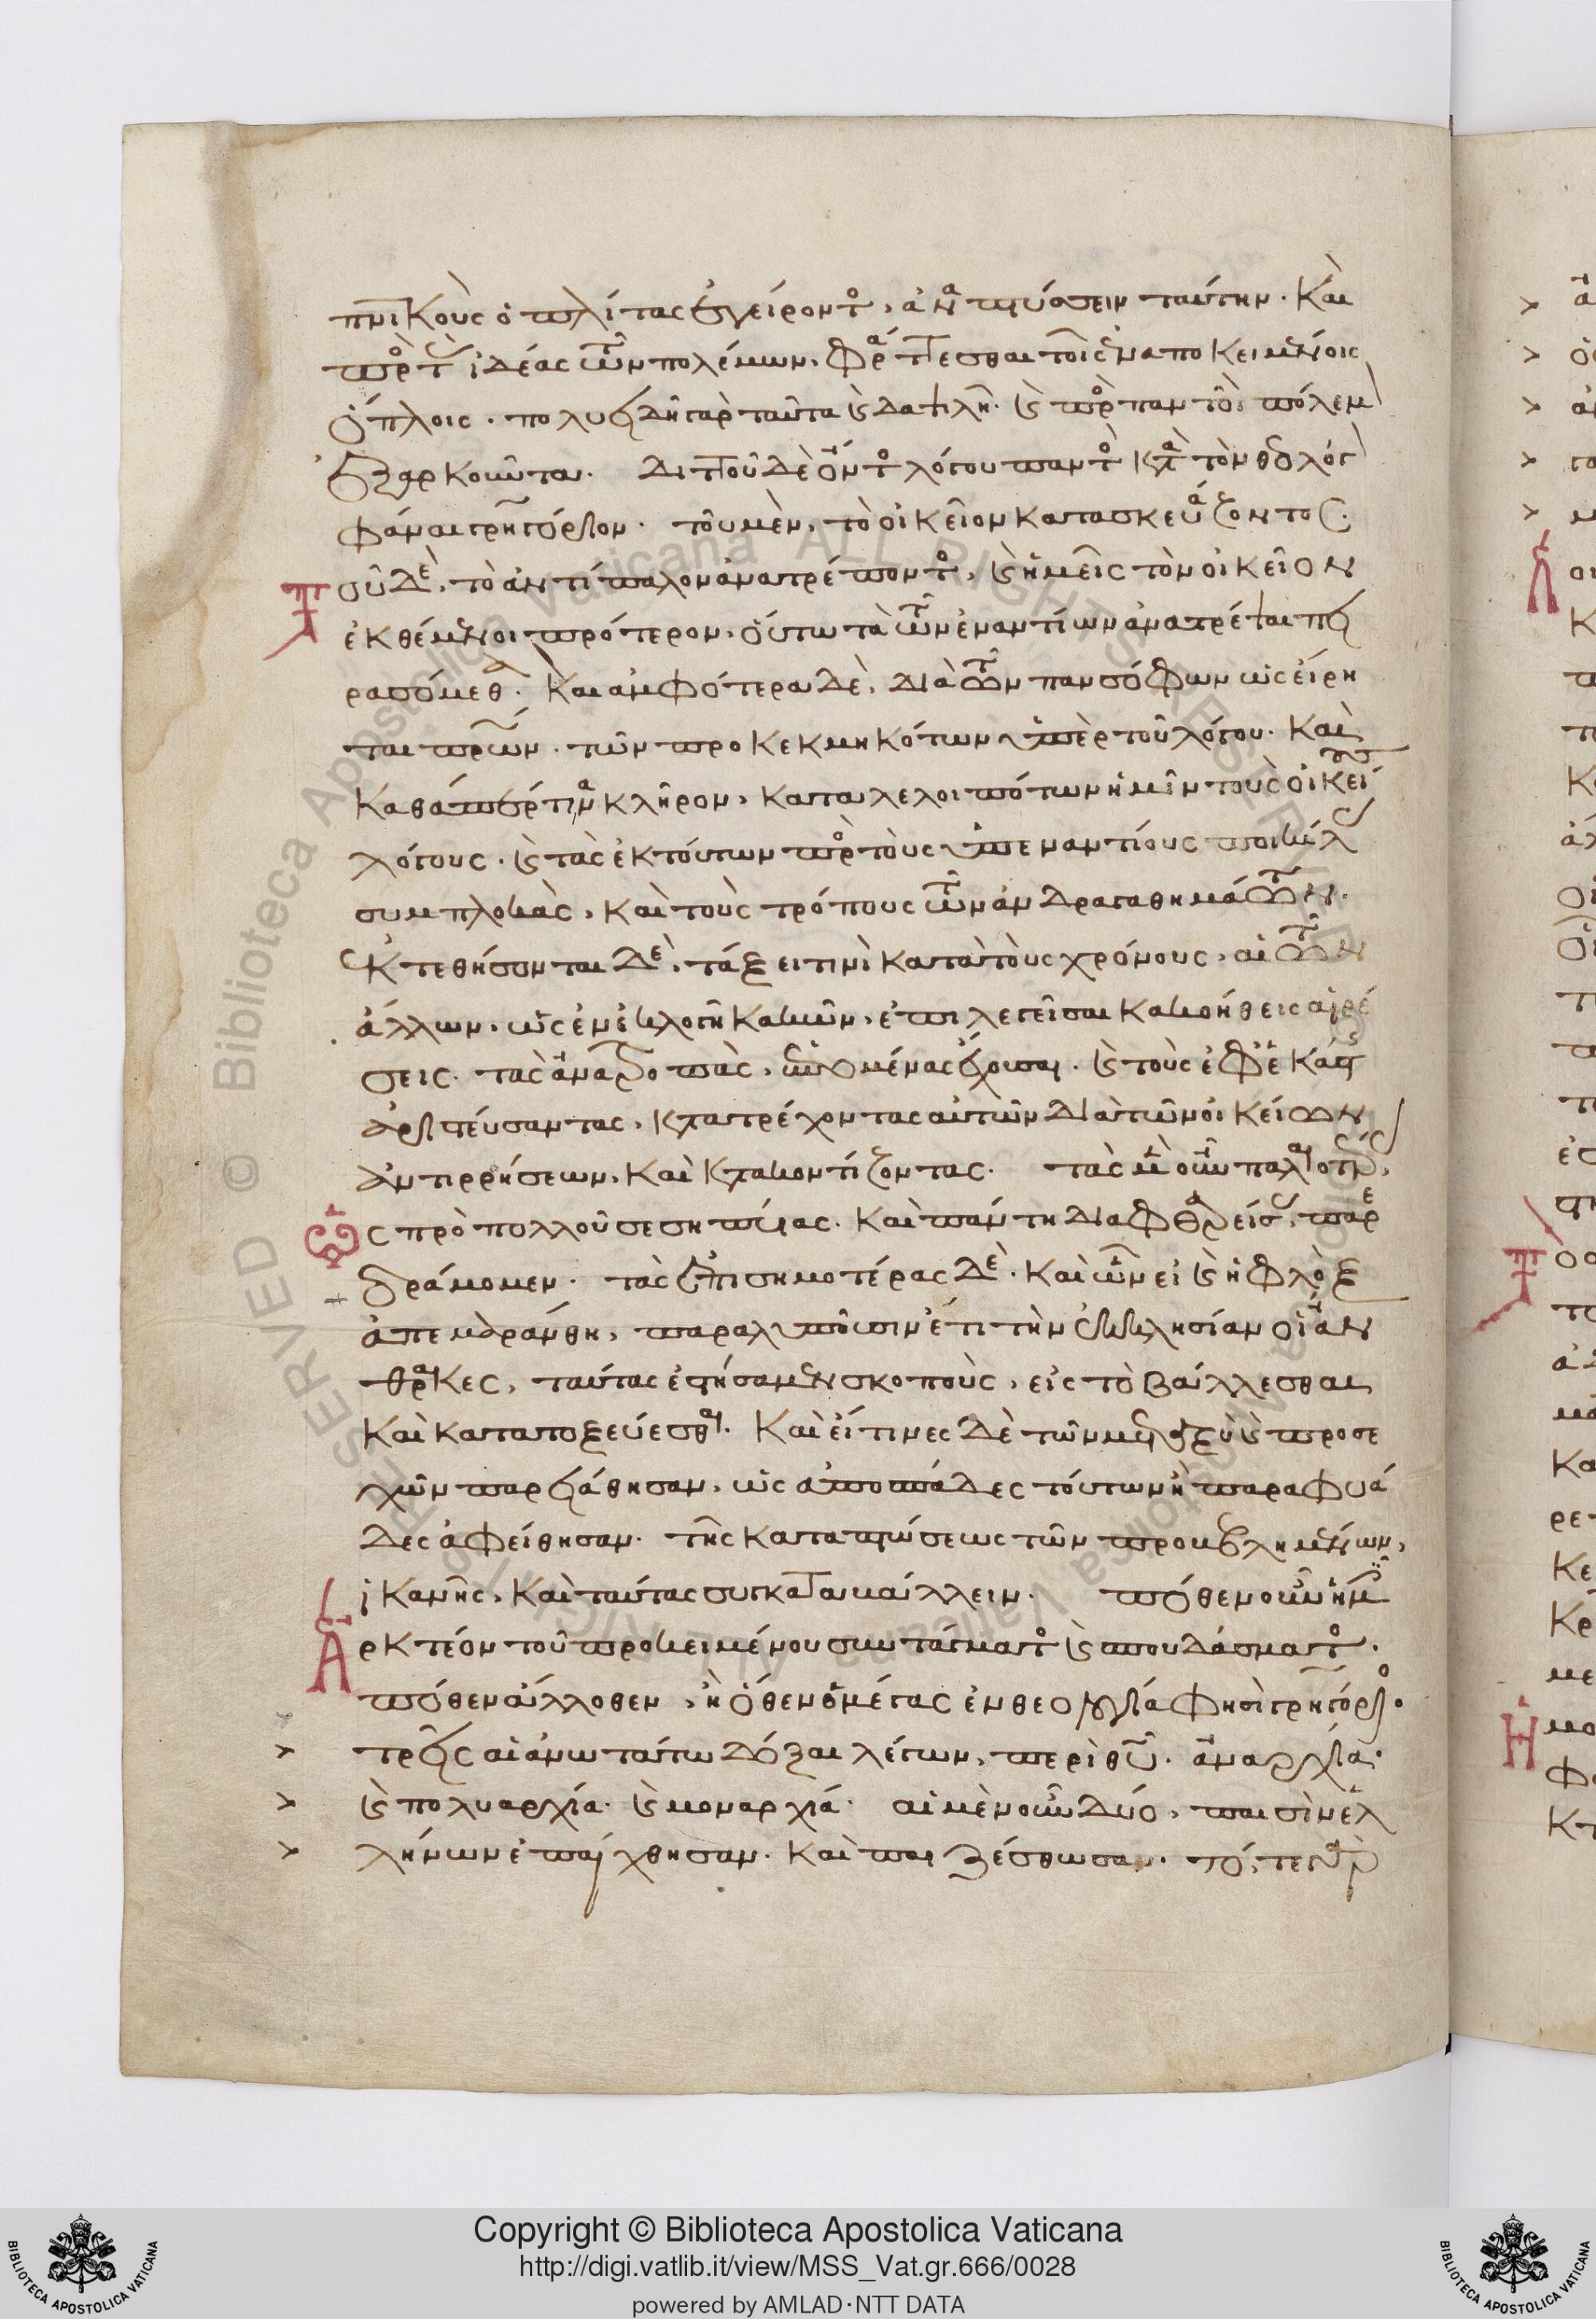 πνικοὺς ὁπλίτας ἐγείροντος, ἀναπτύσσειν ταύτην. καὶ
πρὸς τὰς ἰδέας τῶν πολέμων, φράττεσθαι τοῖς ἐναποκειμένοις
ὅπλοις. πολυειδῆ γὰρ ταῦτα καὶ δαψιλῆ. καὶ πρὸς παντοῖον πόλεμον
ἐξαρκοῦντα. διττοῦ δὲ ὄντος λόγου παντὸς κατὰ τὸν θεολόγον
φάναι γρηγόριον. τοῦ μὲν, τὸ οἰκεῖον κατασκευάζοντος.
τοῦ δὲ, τὸ ἀντίπαλον ἀνατρέποντος, καὶ ἡμεῖς τὸν οἰκεῖον
ἐκθέμενοι πρότερον, οὕτω τὰ τῶν ἐναντίων ἀνατρέψαι πει
ρασόμεθα. καὶ ἀμφότερα δὲ, διὰ τῶν πανσόφων ὡς εἴρη
ται πατέρων. τῶν προκεκμηκότων ὑπὲρ τοῦ λόγου. καὶ
καθάπέρ τινα κλῆρον, καταλελοιπότων ἡμῖν τοὺς οἰκείους
λόγους. καὶ τὰς ἐκ τούτων πρὸς τοὺς ὑπεναντίους ποικίλας
συμπλοκὰς, καὶ τοὺς τρόπους τῶν ἀνδραγαθημάτων.
ἐκτεθήσονται δὲ, τάξει τινὶ κατὰ τοὺς χρόνους, αἱ τῶν
ἄλλων, ὡς ἐν ἐκλογῇ κακῶν, ἐπιλεγεῖσαι κακοήθεις αἱρέ
σεις. τὰς ἀνατροπὰς, ἑπομένας ἔχουσαι. καὶ τοὺς ἐφ' ἑκάστης
ἀριστεύσαντας, κατατρέχοντας αὐτῶν διὰ τῶν οἰκείων
ἀντιρρήσεων, καὶ κατακοντίζοντας. τὰς μὲν οὖν παλαιοτέρας,
ὡς πρὸ πολλοῦ σεσηπυίας. καὶ πάντη διαφθαρείσας, παρε
δράμομεν. τὰς ἐπισημοτέρας δὲ. καὶ ὧν εἰ καὶ ἡ φλὸξ
ἀπεμαράνθη, παραλυποῦσιν ἔτι τὴν ἐκκλησίαν οἱ ἄν
θρακες, ταύτας ἐστήσαμεν σκοποὺς, εἰς τὸ βάλλεσθαι
καὶ κατατοξεύεσθαι. καὶ εἴ τινες δὲ τῶν μεταξὺ καὶ προσε
χῶν παρείθησαν, ὡς ἀποσπάδες τούτων ἢ παραφυά
δες ἀφείθησαν. τῆς καταπτώσεως τῶν προβεβλημένων,
ἱκανῆς, καὶ ταύτας συγκαταβάλλειν. πόθεν οὖν ἡμῖν
ἀρκτέον τοῦ προκειμένου συντάγματος καὶ σπουδάσματος.
πόθεν ἄλλοθεν, ἢ ὅθεν ὁ μέγας ἐν θεολογίᾳ φησὶ γρηγόριος
τρεῖς αἱ ἀνωτάτω δόξαι λέγων, περὶ θεοῦ. ἀναρχία.
καὶ πολυαρχία. καὶ μοναρχία. αἱ μὲν οὖν δύο, παισὶν ἑλ
λήνων ἐπαίχθησαν. καὶ παιζέσθωσαν. τό, τε γὰρ
Copyright © Biblioteca Apostolica Vaticana
http://digi.vatlib.it/view/MSS_Vat.gr.666/0028
powered by AMLAD·NTT DATA